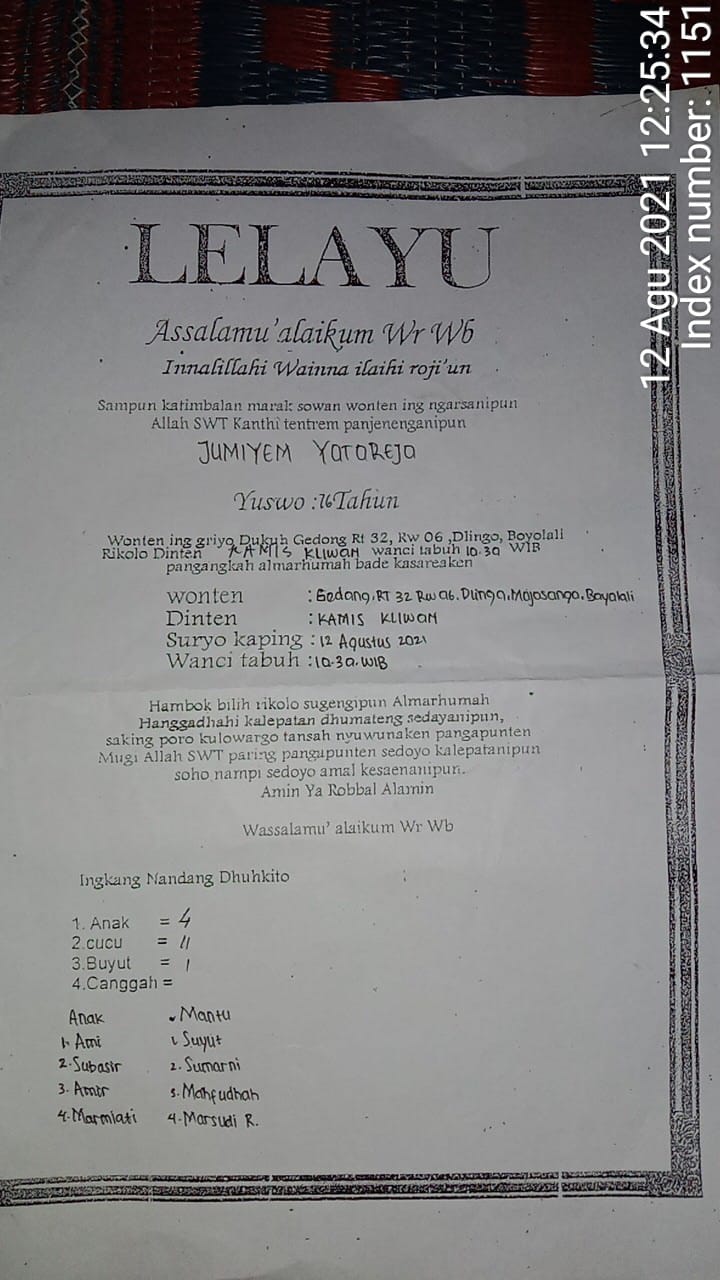 12 Agu 2021 12:25:34
Index number: 1151
LELAYU
Assalamu'alaikum Wr Wb
Innalillahi Wainna ilaihi roji'un
Sampun katimbalan marak sowan wonten ing ngarsanipun
Allah SWT Kanthi tentrem panjenenganipun
JUMIYEM YOTOREJO
Yuswo : Tahun
Wonten ing griyo Dukuh Gedong Rt 32, Rw 06 ,Dlingo, Boyolali
Rikolo Dinten KAMIS KLIWAN wanci tabuh 10.30 WIB
pangangkah almarhumah bade kasareaken
wonten : Gedang, RT 32 Rw 06. Dlingo, Mojosongo. Boyolali
Dinten : KAMIS KLIWAN
Suryo kaping : 12 Agustus 2021
Wanci tabuh : 10.30. WIB
Hambok bilih rikolo sugengipun Almarhumah
Hanggadhahi kalepatan dhumateng sedayanipun,
saking poro kulowargo tansah nyuwunaken pangapunten
Mugi Allah SWT paring pangapunten sedoyo kalepatanipun
soho nampi sedoyo amal kesaenanipun.
Amin Ya Robbal Alamin
Wassalamu' alaikum Wr Wb
Ingkang Nandang Dhuhkito
1. Anak = 4
2.cucu = 11
3.Buyut = 1
4.Canggah =
Anak
1. Ami
2. Subasir
3. Amir
4. Marmiati
Mantu
1. Suyut
2. Sumarni
3. Mahfudhah
4. Marsudi R.